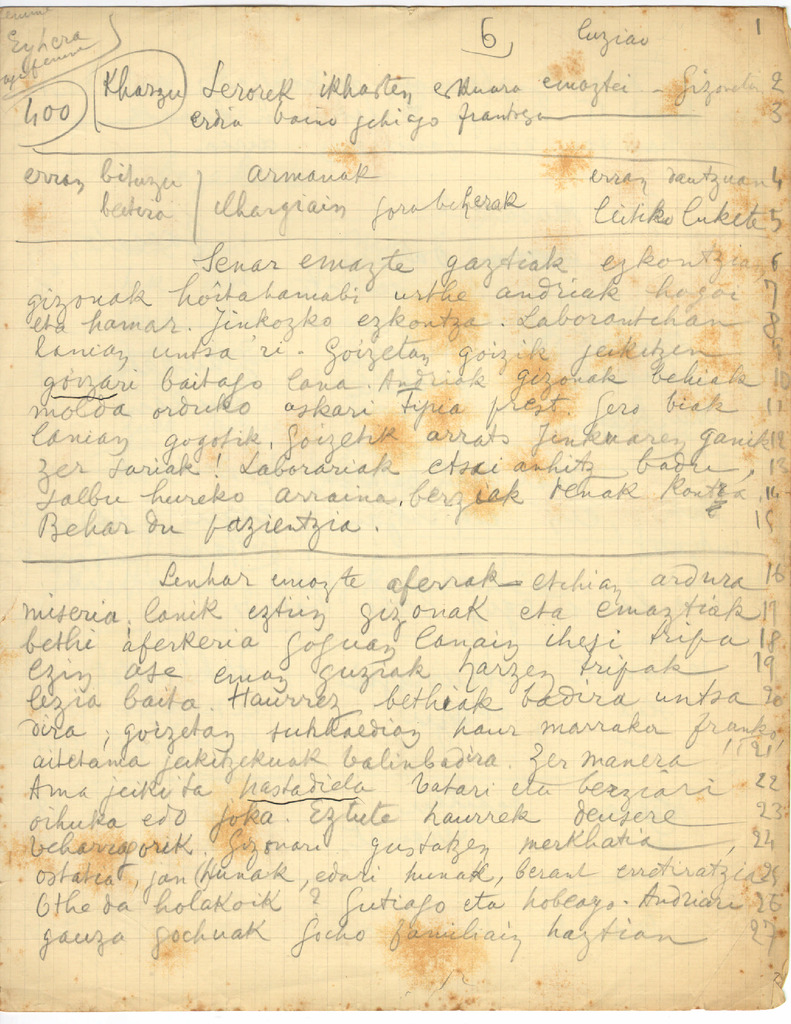 Eyhera
6 luziao 1
400 Kharzu Serorek ikhasten eskuara emaztei - Gizonetan 2
erdia baino gehiago frantsesa 3
erran bituzu armanak erran dautzuan 4
beitira ilhargiain gora beherak 5
Senar emazte gaztiak ezkontzian 6
gizonak hoita hamabi urthe andriak hogoi 7
eta hamar. Jinkozko ezkontza. Laborantchan 8
lanian untsa 'ri. Goizetan goizik jeikitzen 9
goizari baitago lana. Andriak gizonak behiak 10
molda orduko askari tipia prest. Gero biak 11
lanian gogotik. Goizetik arrats Jinkuaren ganik 12
zer sariak! Laborariak etsai anhitz badu, 13
salbu hureko arraina, berziak denak kontra. 14
Behar du pazientzia. 15
Senhar emazte aferrak - etchian ardura 16
miseria. Lanik eztin gizonak eta emaztiak 17
bethi aferkeria goguan lanain ihesi tripa 18
ezin ase eman guziak harzen tripak 19
lezia baita. Haurrez bethiak badira untsa 20
dira, goizetan sukhaldian haur marraka franko! 21
aitetama jeikitzekuak balinbadira. Zer manera!
Ama jeiki ta pastadiela batari eta berziari 22
oihuka edo joka. Eztute haurrek deusere 23
beharrigorik. Gizonari gustatzen merkhatia, 24
ostatia, jan hunak, edari hunak, berant erretiratzia 25
Othe da holakoik? Gutiago eta hobeago. Andriari 26
gauza gochuak gocho familiain haztian 27